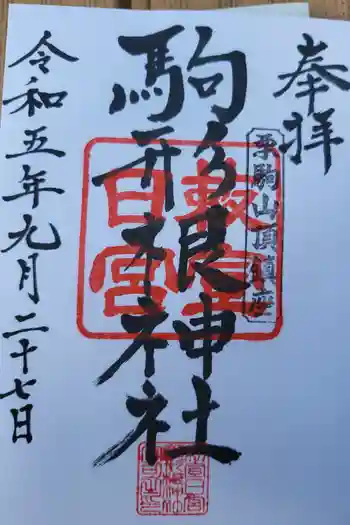 奉拝
栗駒山頂鎮座
駒形根神社
敕宣
日宮
令和五年九月二十七日